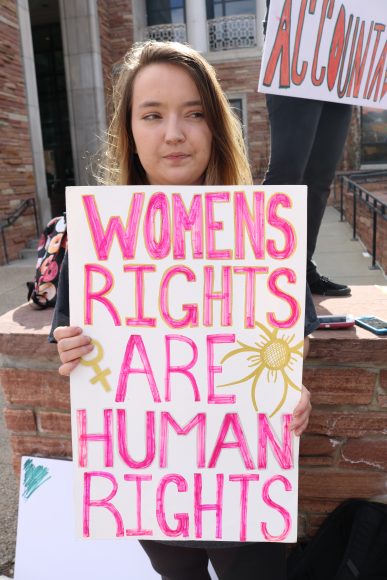 ACCOUNTA
WOMENS
RIGHTS
ARE
HUMAN
RIGHTS